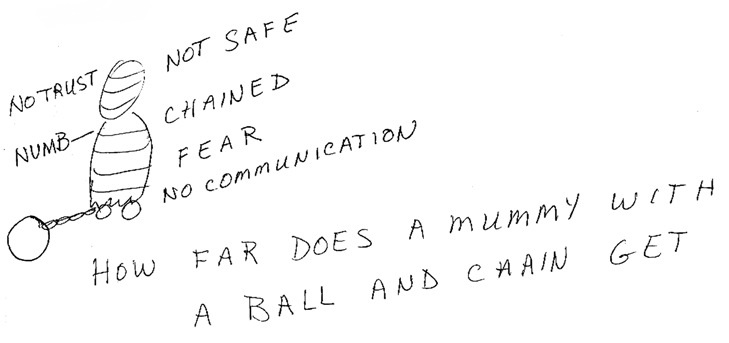 NOT SAFE
NO TRUST
CHAINED
NUMB
FEAR
NO COMMUNICATION
HOW FAR DOES A MUMMY WITH
A BALL AND CHAIN GET